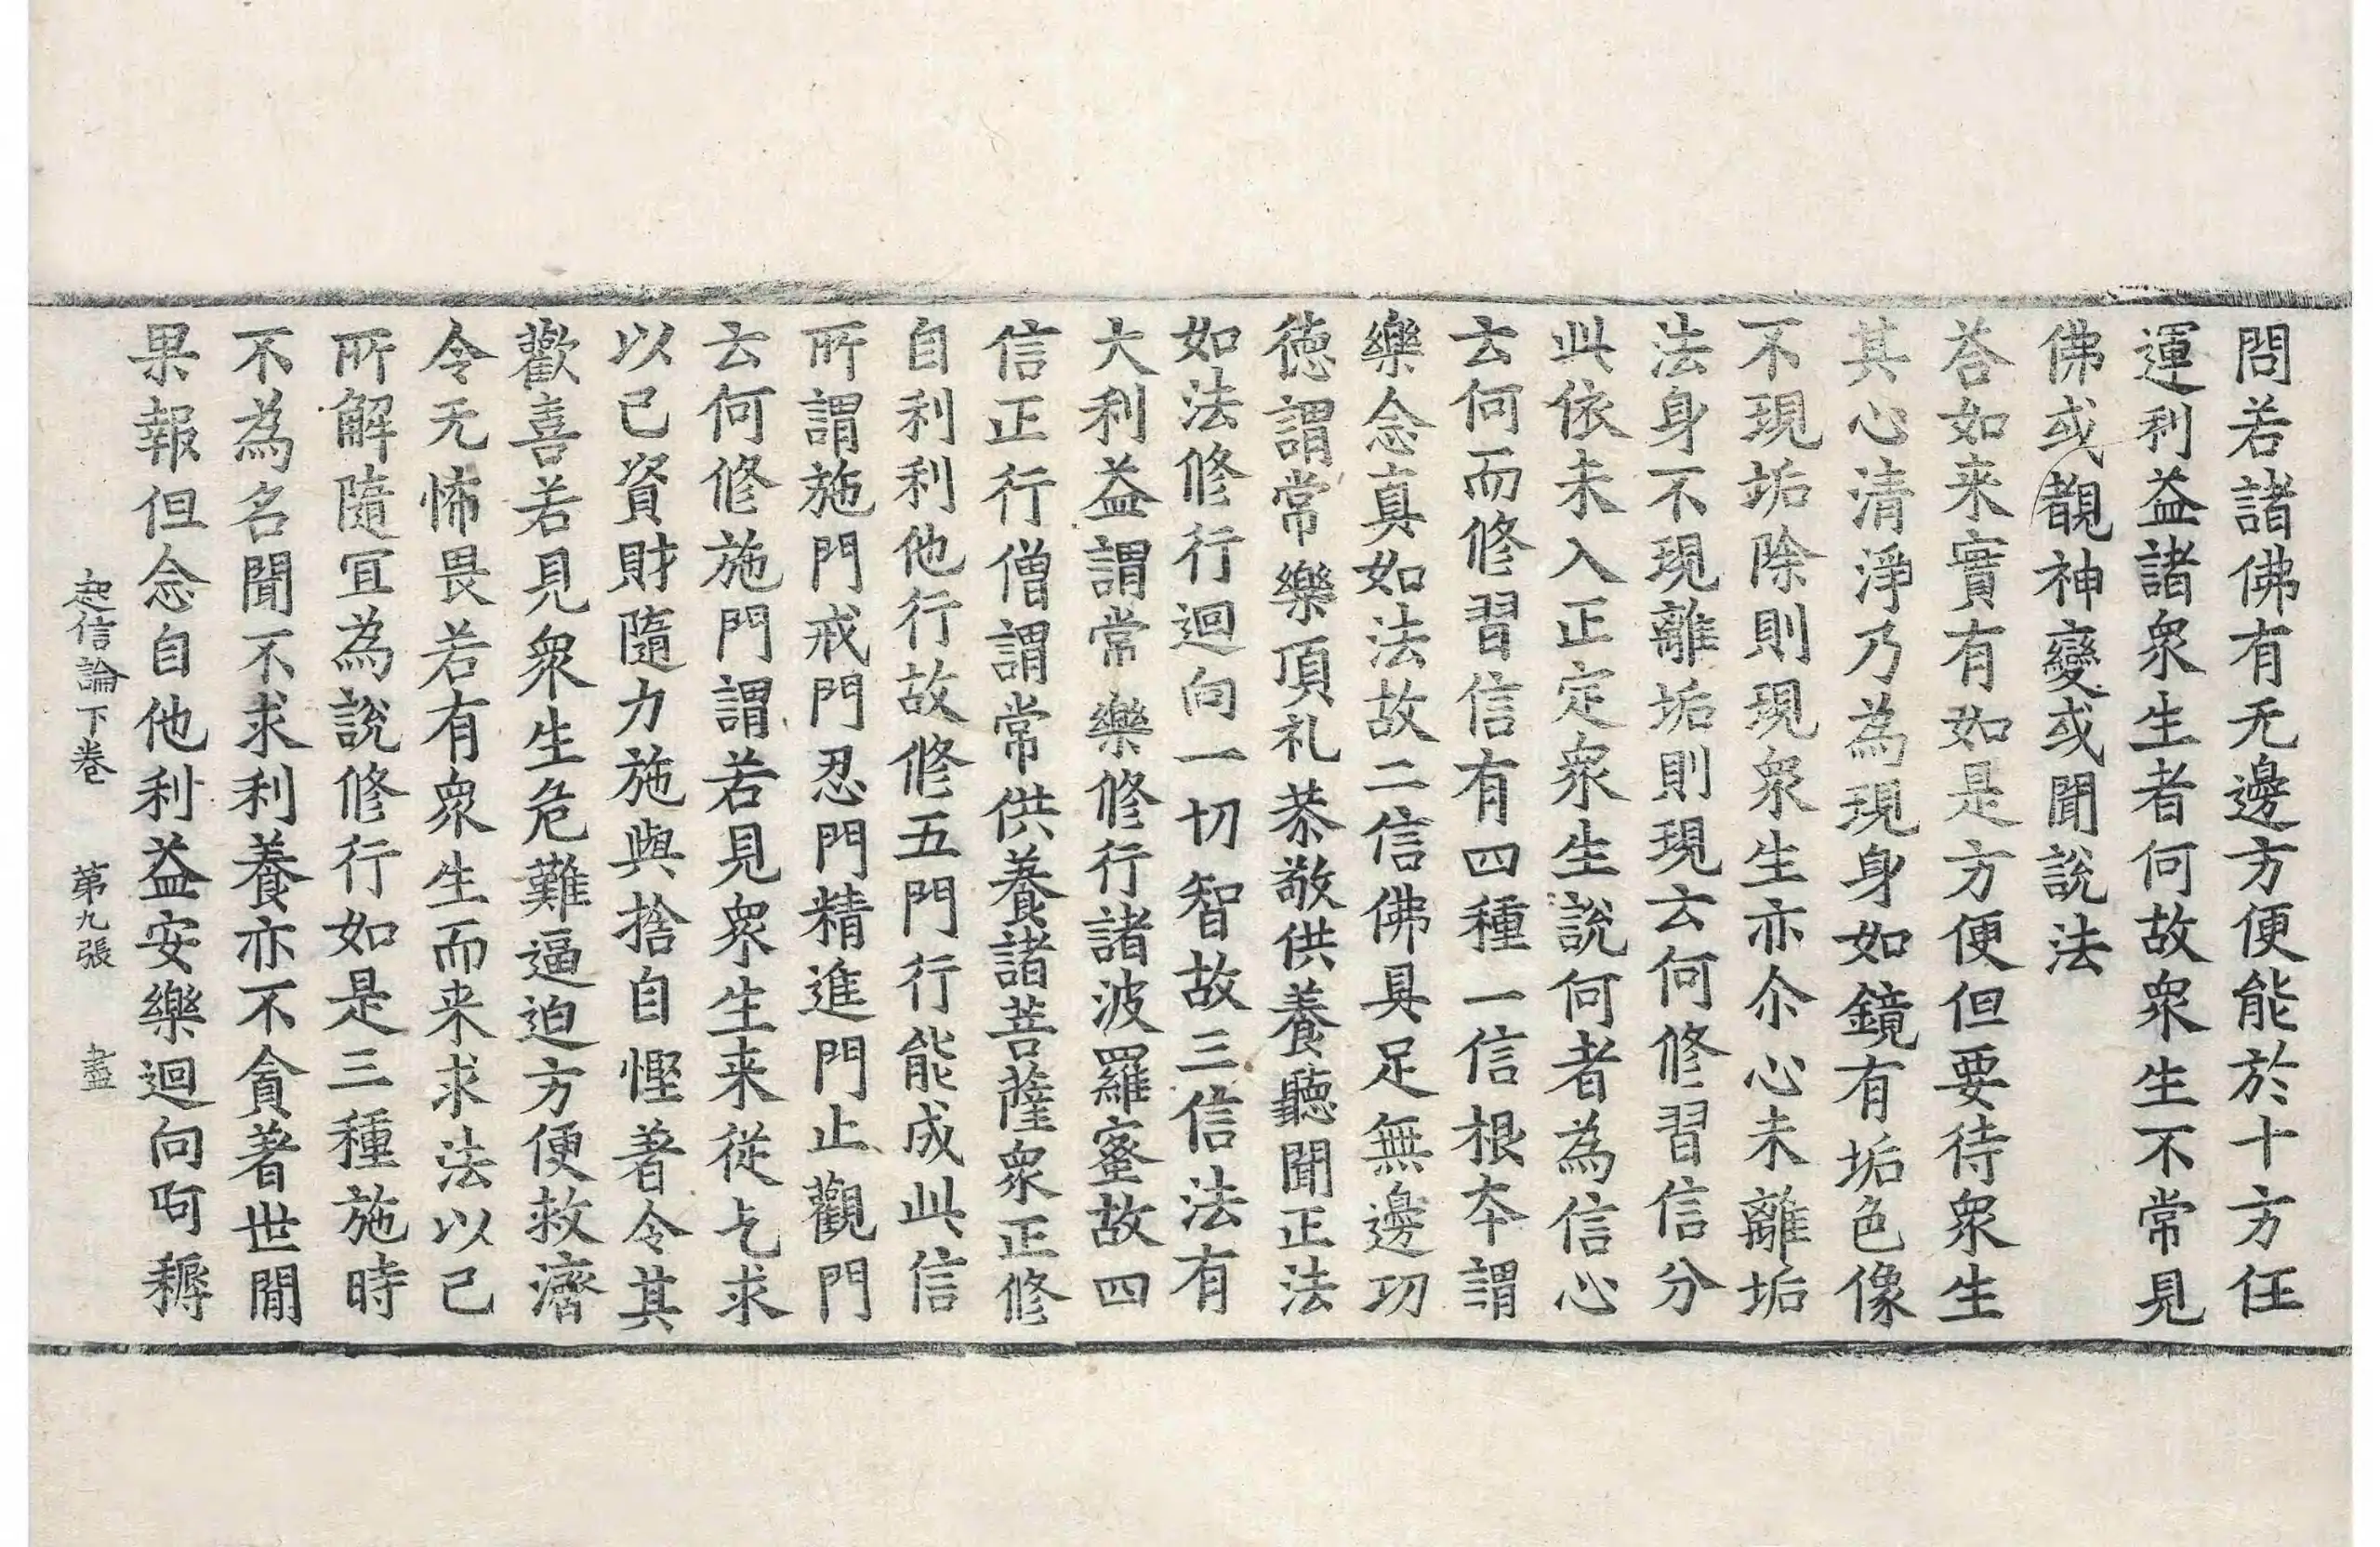 問若諸佛有无邊方便能於十方任
運利益諸衆生者何故衆生不常見
佛或覩神變或聞說法
荅如来實有如是方便但要待衆生
其心清淨乃為現身如鏡有垢色像
不現垢除則現衆生亦尒心未離垢
法身不現離垢則現云何修習信分
此依未入正定衆生說何者為信心
云何而修習信有四種一信根本謂
樂念真如法故二信佛具足無邊功
徳謂常樂頂礼恭敬供養聽聞正法
如法修行迴向一切智故三信法有
大利益謂常樂修行諸波羅蜜故四
信正行僧謂常供養諸菩薩衆正修
自利利他行故修五門行能成此信
所謂施門戒門忍門精進門止觀門
云何修施門謂若見衆生来從乞求
以己資財隨力施與捨自慳著令其
歡喜若見衆生危難逼迫方便救濟
令无怖畏若有衆生而来求法以己
所解隨冝為說修行如是三種施時
不為名聞不求利養亦不貪著世間
果報但念自他利益安樂迴向阿耨
起信論下卷 第九張 盡